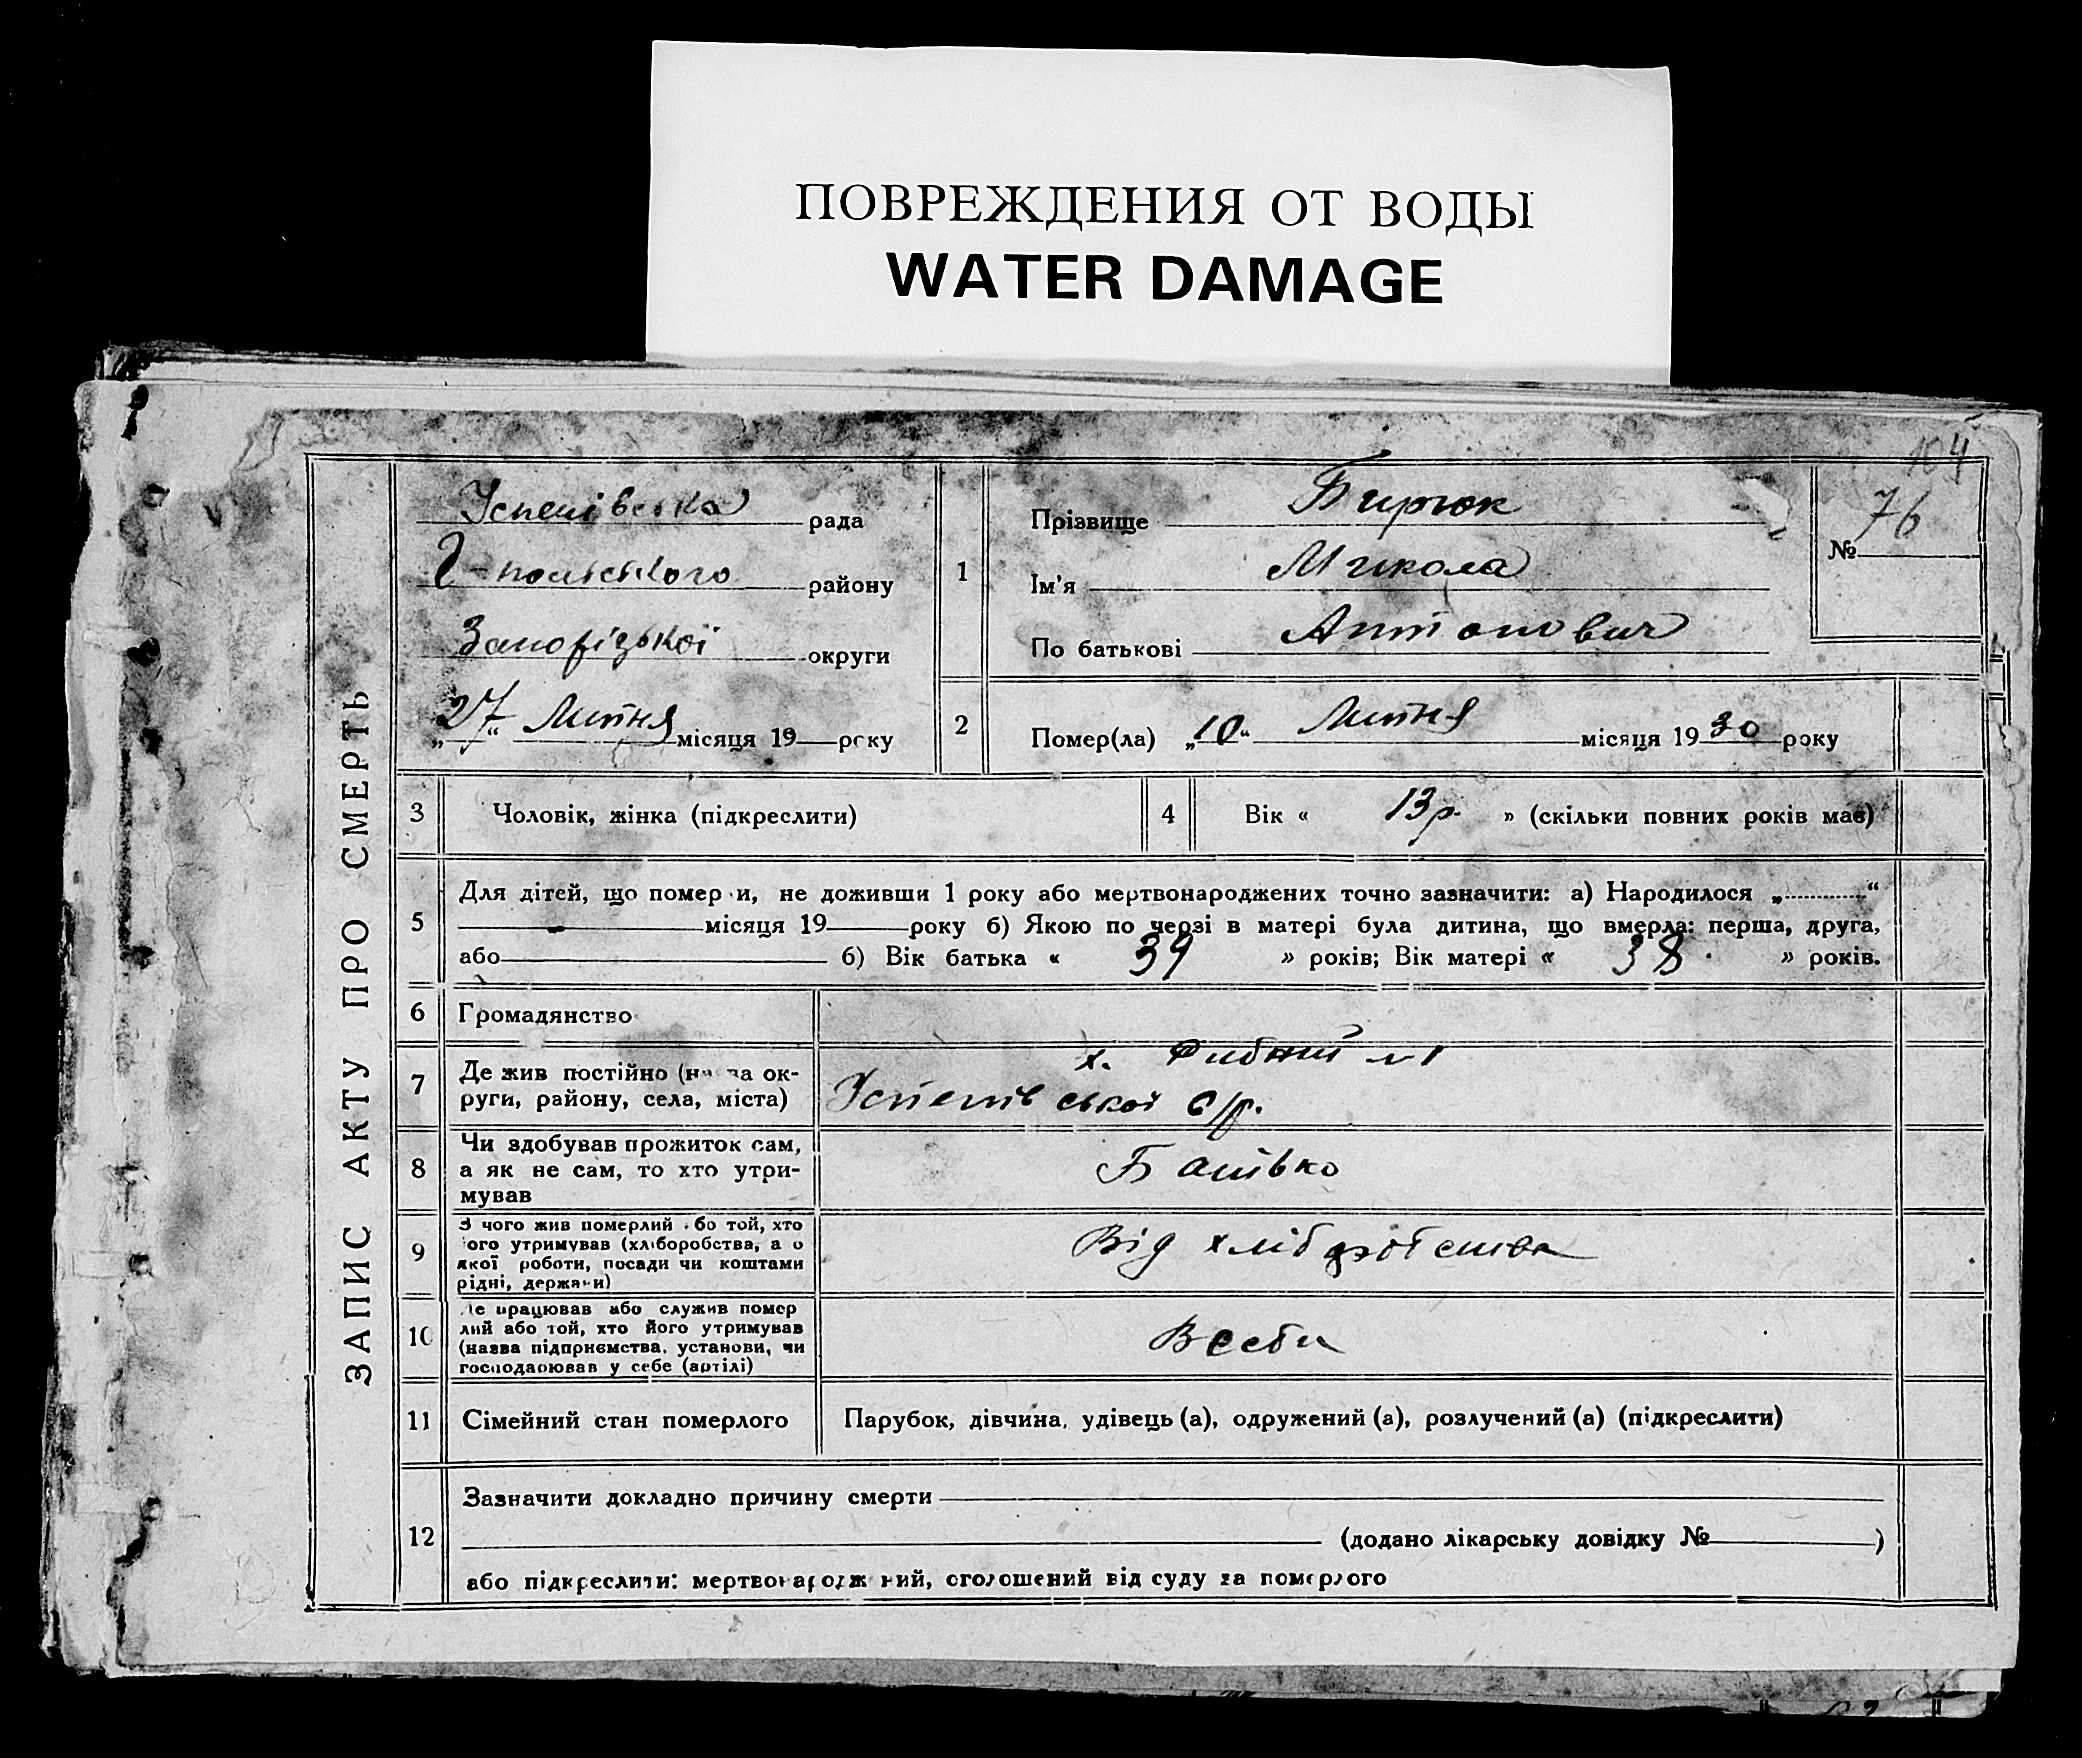 ПОВРЕЖДЕНИЯ ОТ ВОДЫ
WATER DAMAGE
104
ЗАПИС АКТУ ПРО СМЕРТЬ
Успенівська рада
Г-польського району
Запорізької округи
„27“ Липня місяця 19 року
1
Прізвище Бирюк
Ім'я Микола
По батькові Антонович
№ 76
2
Помер(ла) „10“ Липня місяця 1930 року
3
Чоловік, жінка (підкреслити)
4
Вік « 13 р. » (скільки повних років має)
5
Для дітей, що помер и, не доживши 1 року або мертвонароджених точно зазначити: а) Народилося „ “
місяця 19 року б) Якою по черзі в матері була дитина, що вмерла: перша, друга,
або б) Вік батька « 39 » років; Вік матері « 38 » років.
6
Громадянство
7
Де жив постійно ( ок-
руги, району, села, міста)
х. №1
Успенівської с/р.
8
Чи здобував прожиток сам,
а як не сам, то хто утри-
мував
Батько
9
З чого жив померлий бо той, хто
ого утримував (хліборобства, а о
якої роботи, посади чи коштами
рідні, держави)
Від хліборобства
10
е працював або служив помер
лий або той, хто його утримував
(назва підприємства, установи, чи
господарював у себе (артілі)
В себи
11
Сімейний стан померлого
Парубок, дівчина, удівець (а), одружений (а), розлучений (а) (підкреслити)
12
Зазначити докладно причину смерти
(додано лікарську довідку № )
або підкреслити: мертвонародж ний, оголошений від суду за померлого